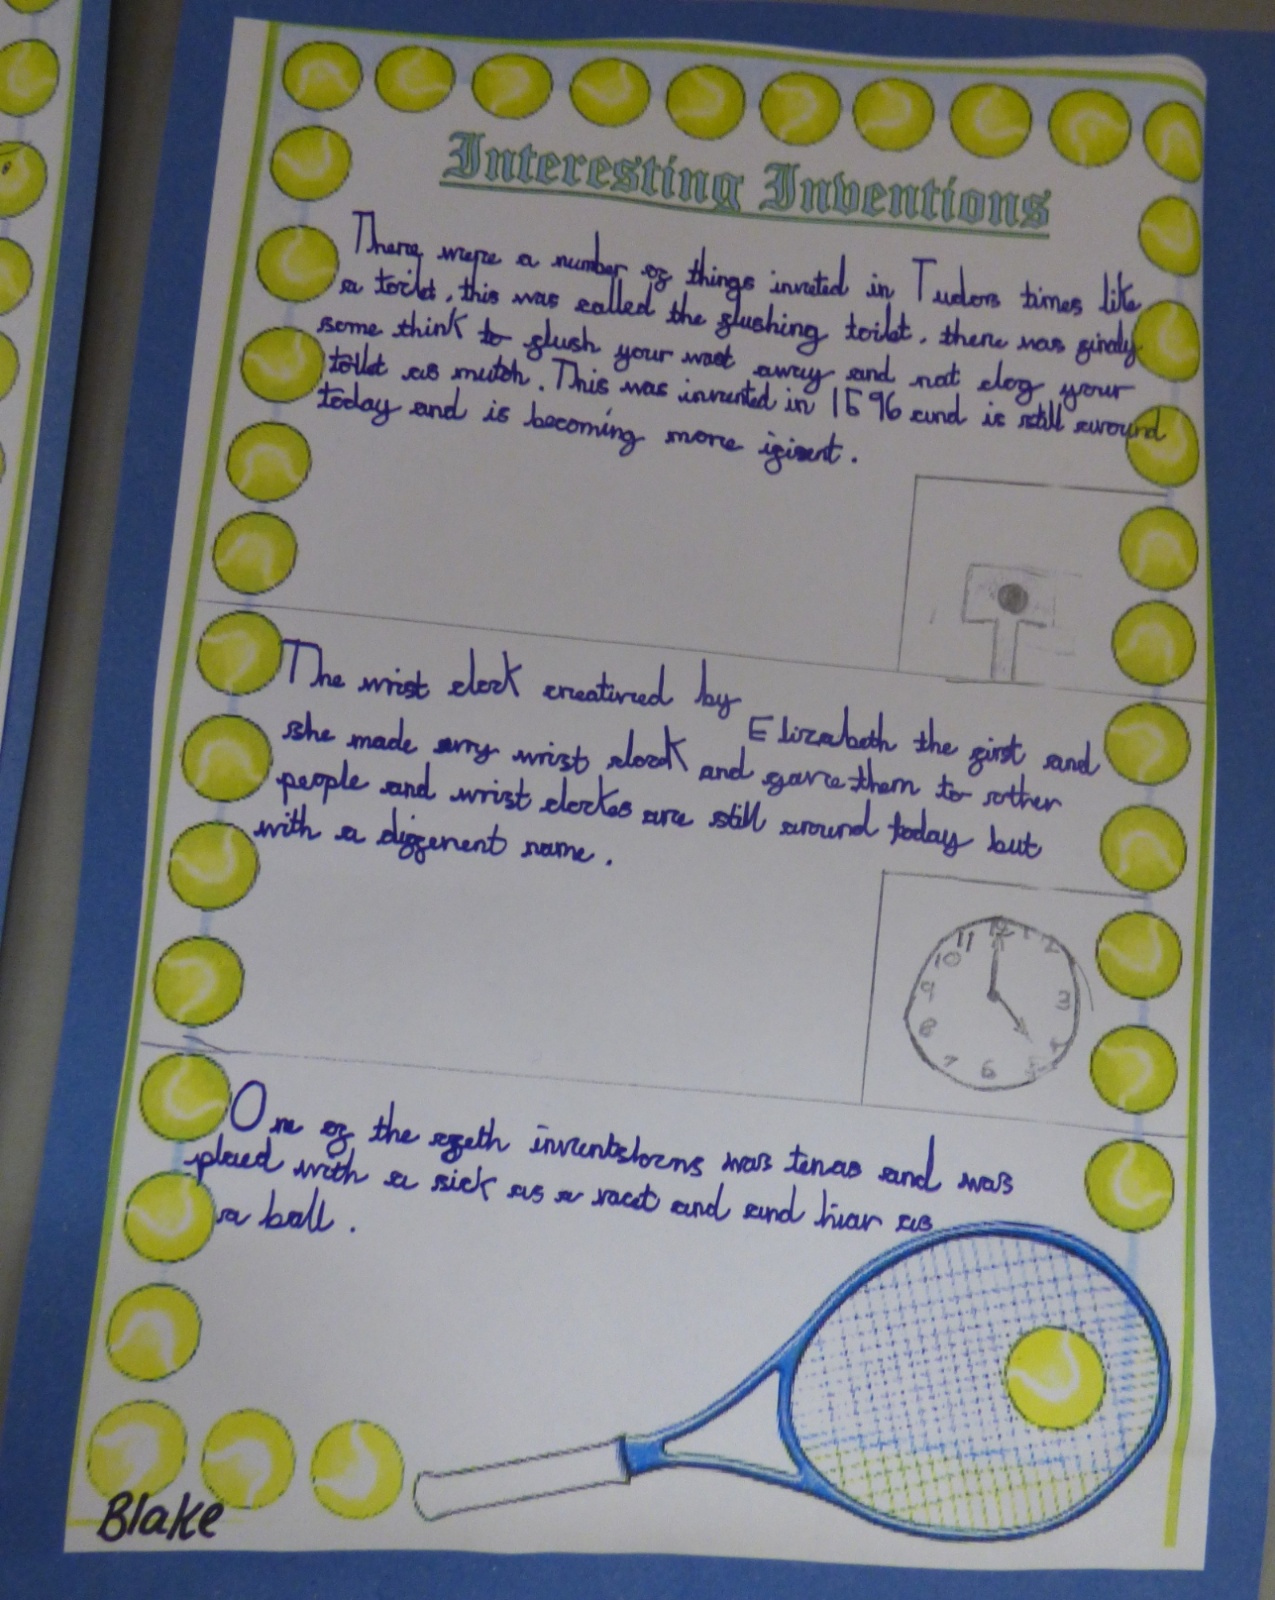 Interesting Inventions
There were a number of things inveted in Tudors times like
a toilet, this was called the flushing toilet, there was findy
some think to flush your wast away and not clog your
toilet as mutch. This was invented in 1596 and is still around
today and is becoming more
The wrist clock creatived by Elizabeth the first and
she made wrist clock and gave them to other
people and wrist clockes are still around today but
with a different name.
One of the inventstorns was tenas and was
plaed with a sick as a racet and and hiar as
a ball.
11 12 1 2
10
9 3
8 4
7 6 5
Blake